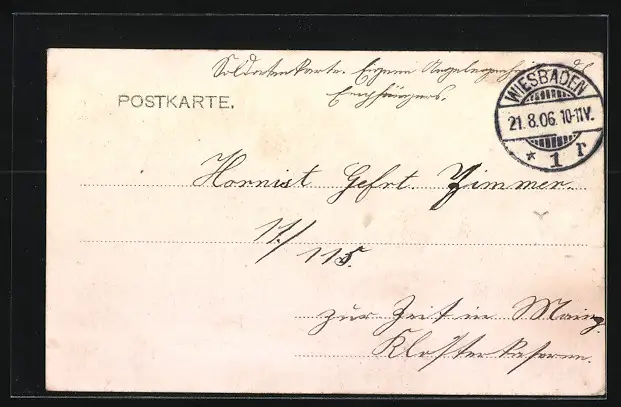 Soldatenkarte. Eigene Angelegenheit des
Empfängers.
POSTKARTE.
WIESBADEN
21.8.06.10-11V.
* 1 r
Hornist Gefrt. Zimmer.
11./115.
zur Zeit in Mainz
Klosterkaserne.